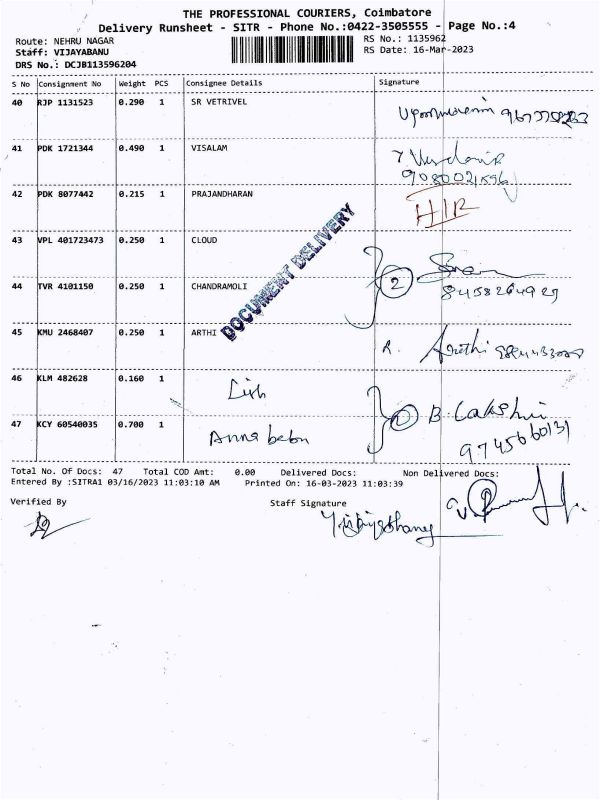 THE PROFESSIONAL COURIERS, Coimbatore
Delivery Runsheet - SITR - Phone No.:0422-3505555 - Page No.:4
Route: NEHRU NAGAR RS No.: 1135962
Staff: VIJAYABANU RS Date: 16-Mar-2023
DRS No.: DCJB113596204
S No Consignment No Weight PCS Consignee Details Signature
40 RJP 1131523 0.290 1 SR VETRIVEL
41 PDK 1721344 0.490 1 VISALAM
42 PDK 8077442 0.215 1 PRAJANDHARAN
H/R
43 VPL 401723473 0.250 1 CLOUD
DOCUMENT DELIVERY
2
44 TVR 4101150 0.250 1 CHANDRAMOLI
8458264929
45 KMU 2468407 0.250 1 ARTHI R.
46 KLM 482628 0.160 1
1 B. Lakshmi
47 KCY 60540035 0.700 1 Anna
9745660131
Total No. Of Docs: 47 Total COD Amt: 0.00 Delivered Docs: Non Delivered Docs:
Entered By :SITRA1 03/16/2023 11:03:10 AM Printed On: 16-03-2023 11:03:39
Verified By Staff Signature